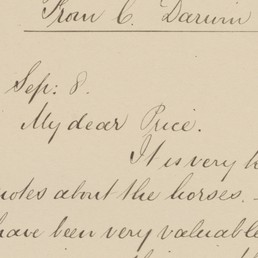 From C. Darwin
Sep: 8.
My dear Price.
It is very h
notes about the horses. -
have been very valuable